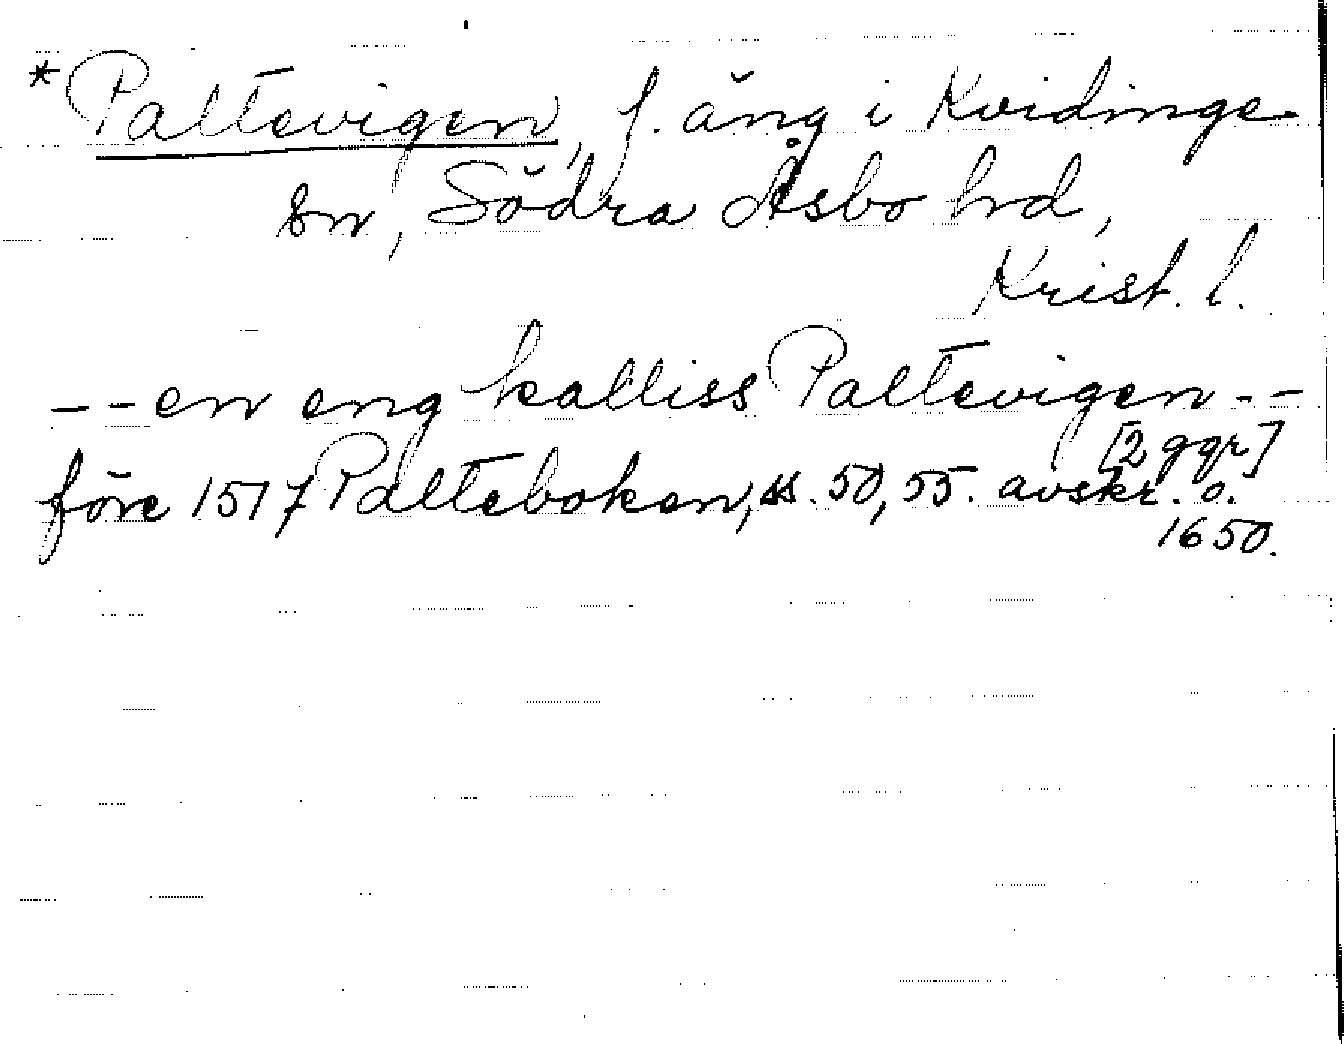 *Paltevigen, f. äng i Kvidinge
sn, Södra Åsbo hd,
Krist. l.
--en eng kalliss Paltevigen--
[2 ggr]
före 1517 Palteboken, ss. 50, 55. avskr. o.
1650.